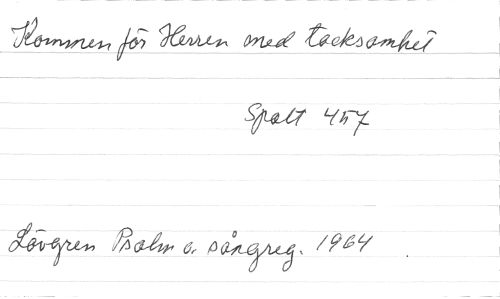 Kommen för Herren med tacksamhet
Spalt 457
Lövgren Psalm o. sångreg. 1964